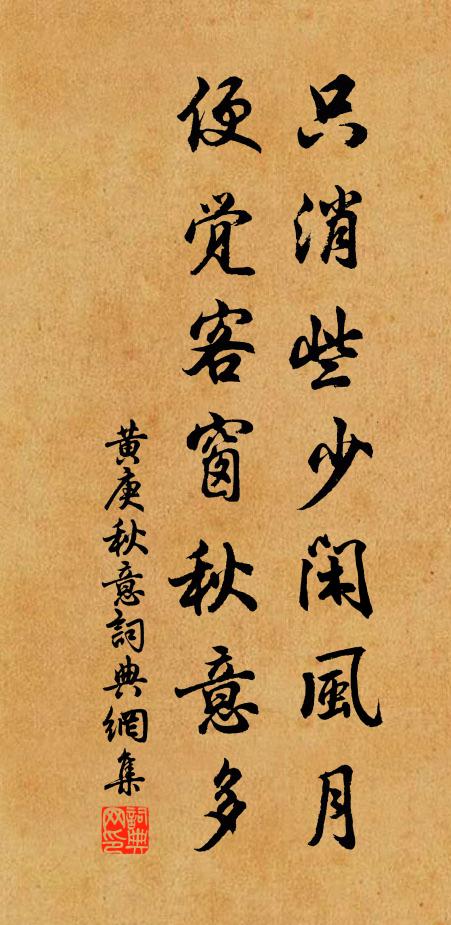 只消些少闲風月
便觉客窗秋意多
黄庚秋意詞典網集
詞典网印